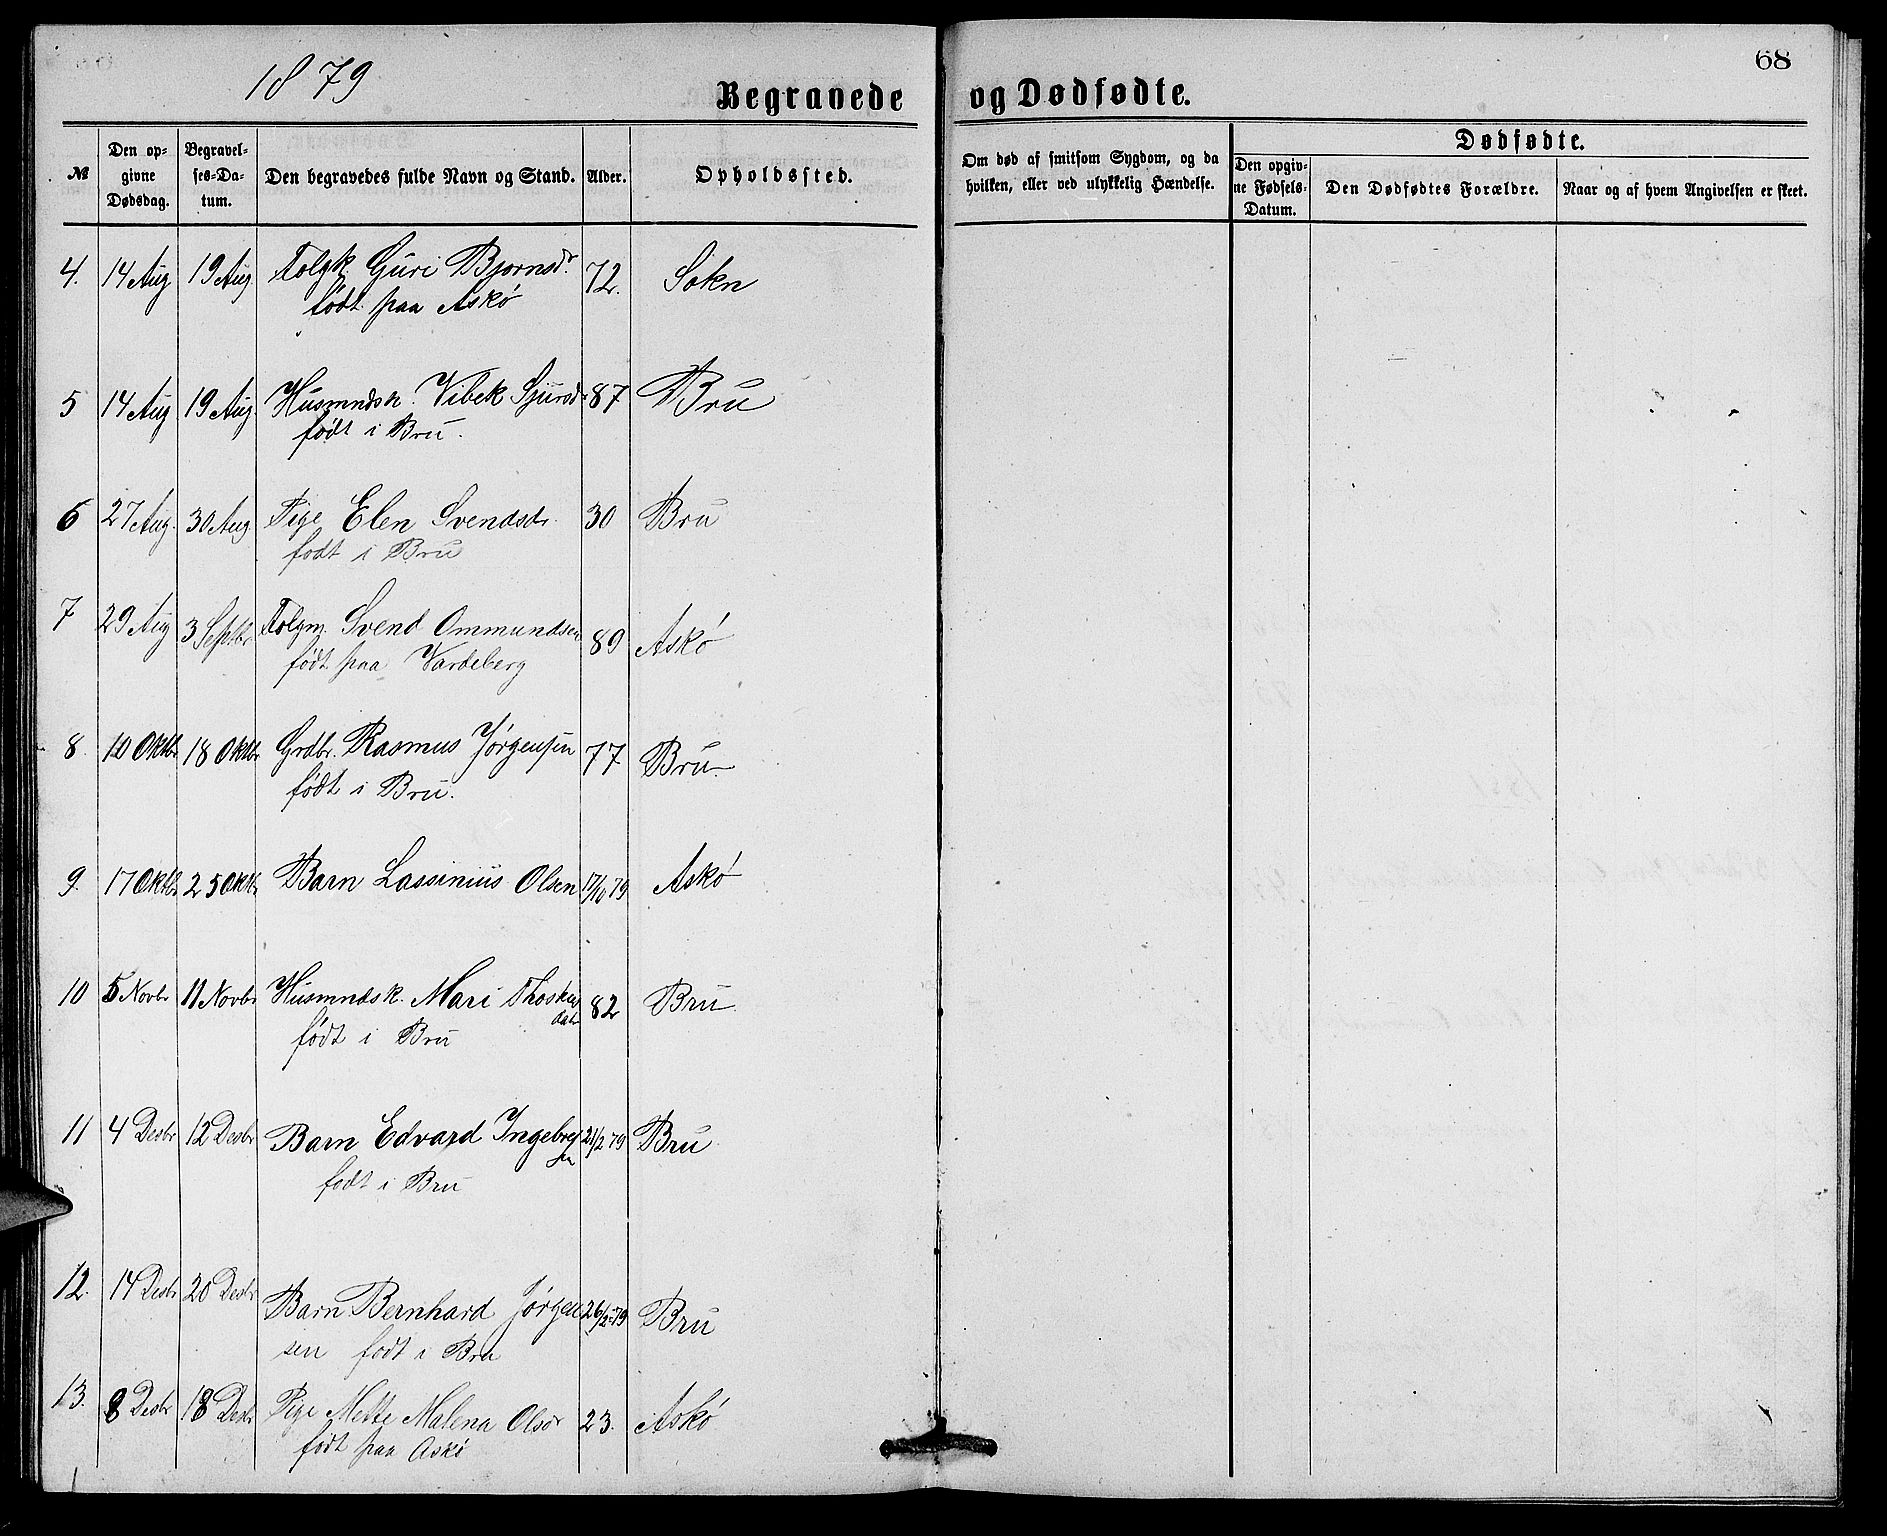 1879
68
Begravede og Dødfødte.
№
Den opgivne Dødsdag.
Begravelses-Datum.
Den begravedes fulde Navn og Stand.
Alder.
Opholdssted.
Om død af smitsom Sygdom, og da hvilken, eller ved ulykkelig Hændelse.
Dødfødte.
Den opgivne Fødsels-Datum.
Den Dødfødtes Forældre.
Naar og af hvem Angivelsen er skeet.
4. 14 Aug 19 Aug. Folgk Guri Bjornsdr. 72. Sokn
født paa Askø
5 14 Aug 19 Aug. Husmndsk. Vibek Sjursdr 87 Bru
født i Bru.
6 27 Aug. 30 Aug Pige Elen Svendsdr. 30 Bru
født i Bru
7 29 Aug 3 Septbr Folgm. Svend Ommundsen 89 Askø
født paa Vardeberg
8. 10 Oktbr 18 Oktbr Grdbr. Rasmus Jørgensen 77 Bru
født i Bru.
9. 17 Oktbr 25 Oktbr Barn Lassinius Olsen 17/10 79 Askø
10 5 Novbr 11 Novbr Husmndsk. Mari 82 Bru.
datr
født i Bru
11 4 Desbr 12 Desbr Barn Edvard Ingebret 21/2 79 Bru
sn
født i Bru
12. 14 Desbr 20 Desbr Barn Bernhard Jørgen 26/2 79 Bru
sen født i Bru
13. 8 Desbr 18 Desbr Pige Mette Malena Olsdr 23. Askø
født paa Askø